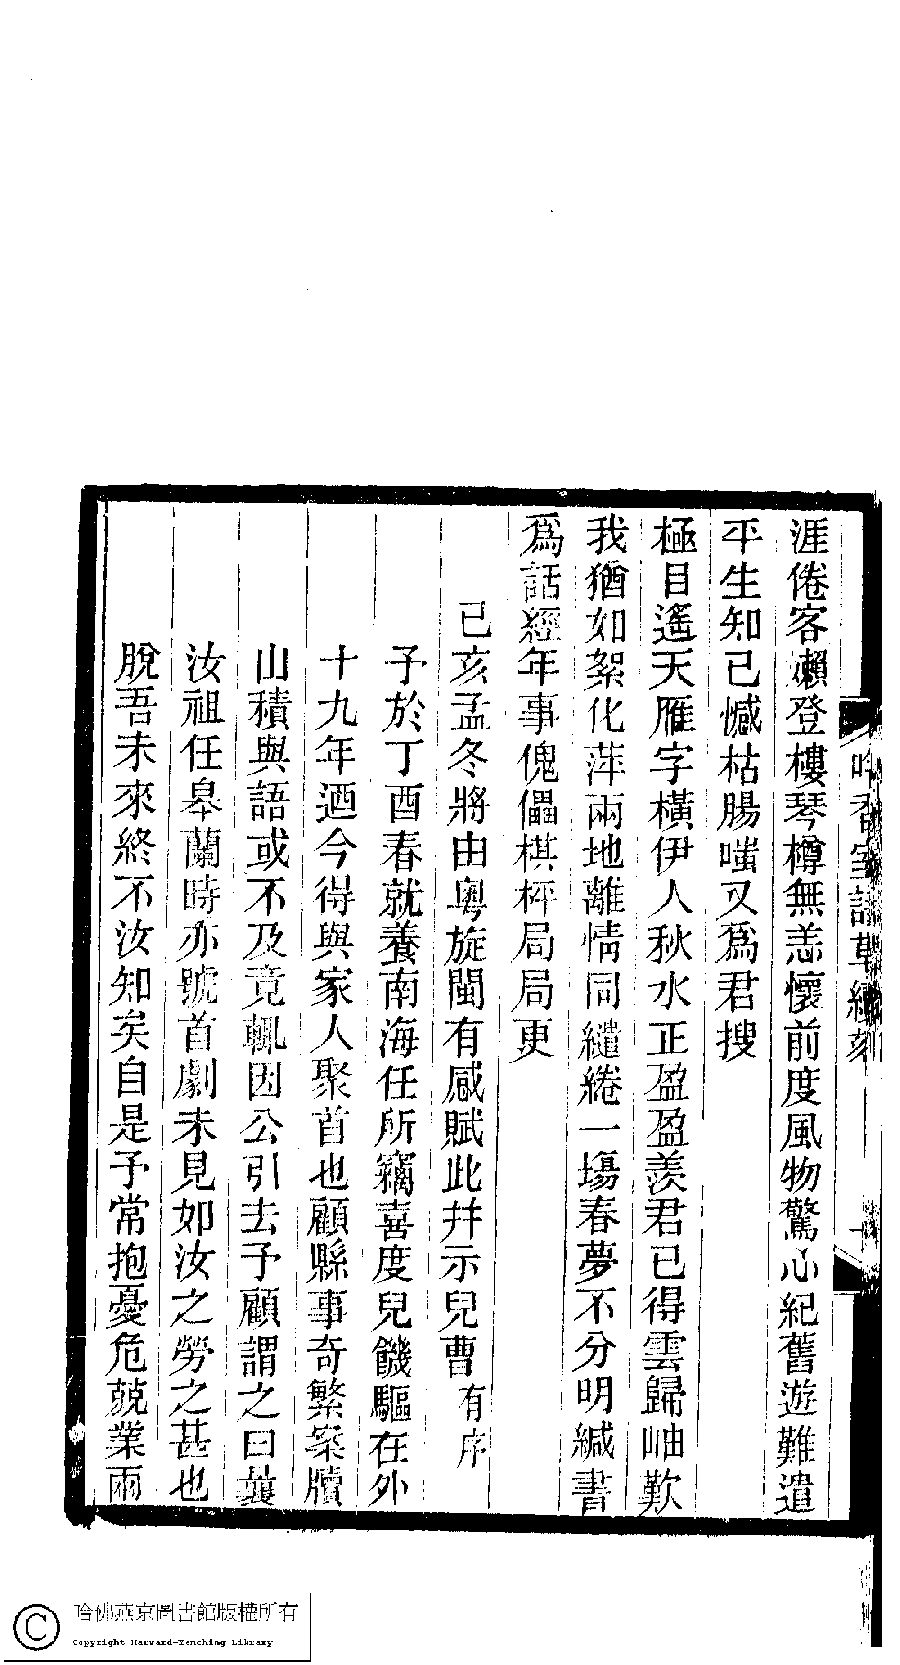 吟香室詩草續刻
涯倦客嬾登樓琴樽無恙懷前度風物驚心紀舊遊難遣
平生知己憾枯腸嗤又爲君搜
極目遙天雁字橫伊人秋水正盈盈羨君已得雲歸岫歎
我猶如絮化萍兩地離情同繾綣一塲春夢不分明緘書
爲話經年事傀儡棋枰局局更
已亥孟冬將由粵旋閩有感賦此幷示兒曹有序
予於丁酉春就養南海任所竊喜度兒饑驅在外
十九年迺今得與家人聚首也顧縣事奇繁案牘
山積與語或不及竟輒因公引去予顧謂之曰曩
汝祖任皋蘭時亦號首劇未見如汝之勞之甚也
脫吾未來終不汝知矣自是予常抱憂危兢業兩
哈佛燕京圖書館版權所有
Copyright Harvard-Yenching Library